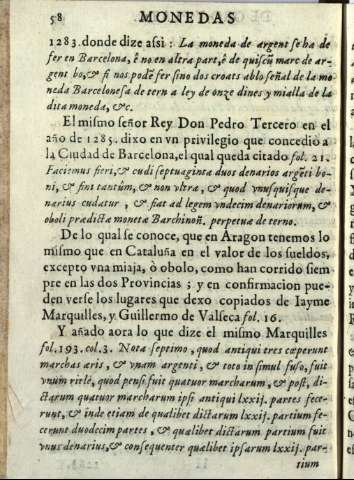 58 MONEDAS
1283. donde dize assi : La moneda de argent se ha de
fer en Barcelona, ê no en altra part, ê de quiscũ marc de ar-
gent bo, & si nos podẽ fer sino dos croats ab lo señal de la mo
neda Barcelonesa de tern a ley de onze dines y mialla de la
dita moneda, &c.
El mismo señor Rey Don Pedro Tercero en el
año de 1285. dixo en vn privilegio que concedio a
la Ciudad de Barcelona, el qual queda citado fol. 21.
Facimus fieri, & cudi septuaginta duos denarios argẽti bo
ni, & fini tantùm, & non vltra, & quod vnusquisque de-
narius cudatur , & fiat ad legem vndecim denariorum, &
oboli prædictæ monetæ Barchinoñ. perpetuæ de terno.
De lo qual se conoce, que en Aragon tenemos lo
mismo que en Cataluña en el valor de los sueldos,
excepto vna miaja, ò obolo, como han corrido siem
pre en las dos Provincias ; y en confirmacion pue-
den verse los lugares que dexo copiados de Iayme
Marquilles, y Guillermo de Valseca fol. 16.
Y añado aora lo que dize el mismo Marquilles
fol. 193. col. 3. Nota septimo, quod antiqui tres cœperunt
marchas æris, & vnam argenti, & toto in simul fuso, fuit
vnum riele, quod pensit quatuor marcharum, & post, di-
ctarum quatuor marcharum ipsi antiqui lxxij. partes fece-
runt, & inde etiam de qualibet dictarum lxxij. partium fe-
cerunt duodecim partes , & qualibet dictarum partium fuit
vnus denarius, & consequenter qualibet ipsarum lxxij. par-
tium